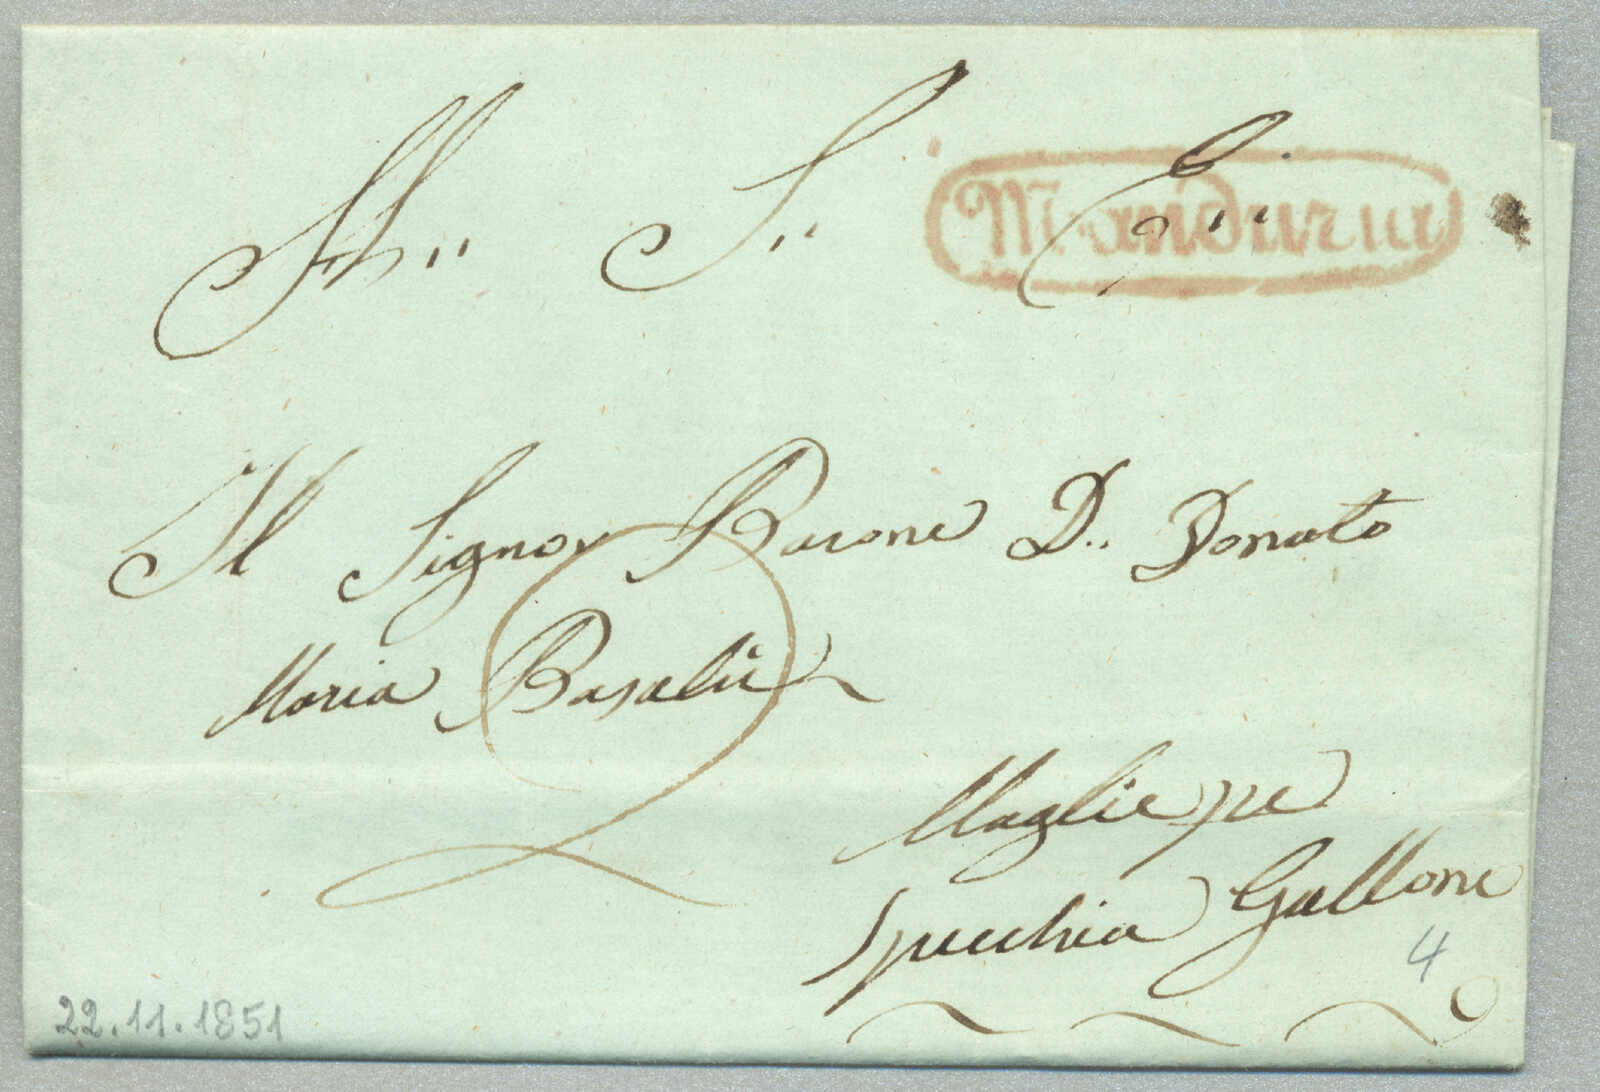 A S. E.
Manduria
Il Signor Barone D. Donato
Maria Basalù
2
Maglie pe
Specchia Gallone
4
22.11.1851